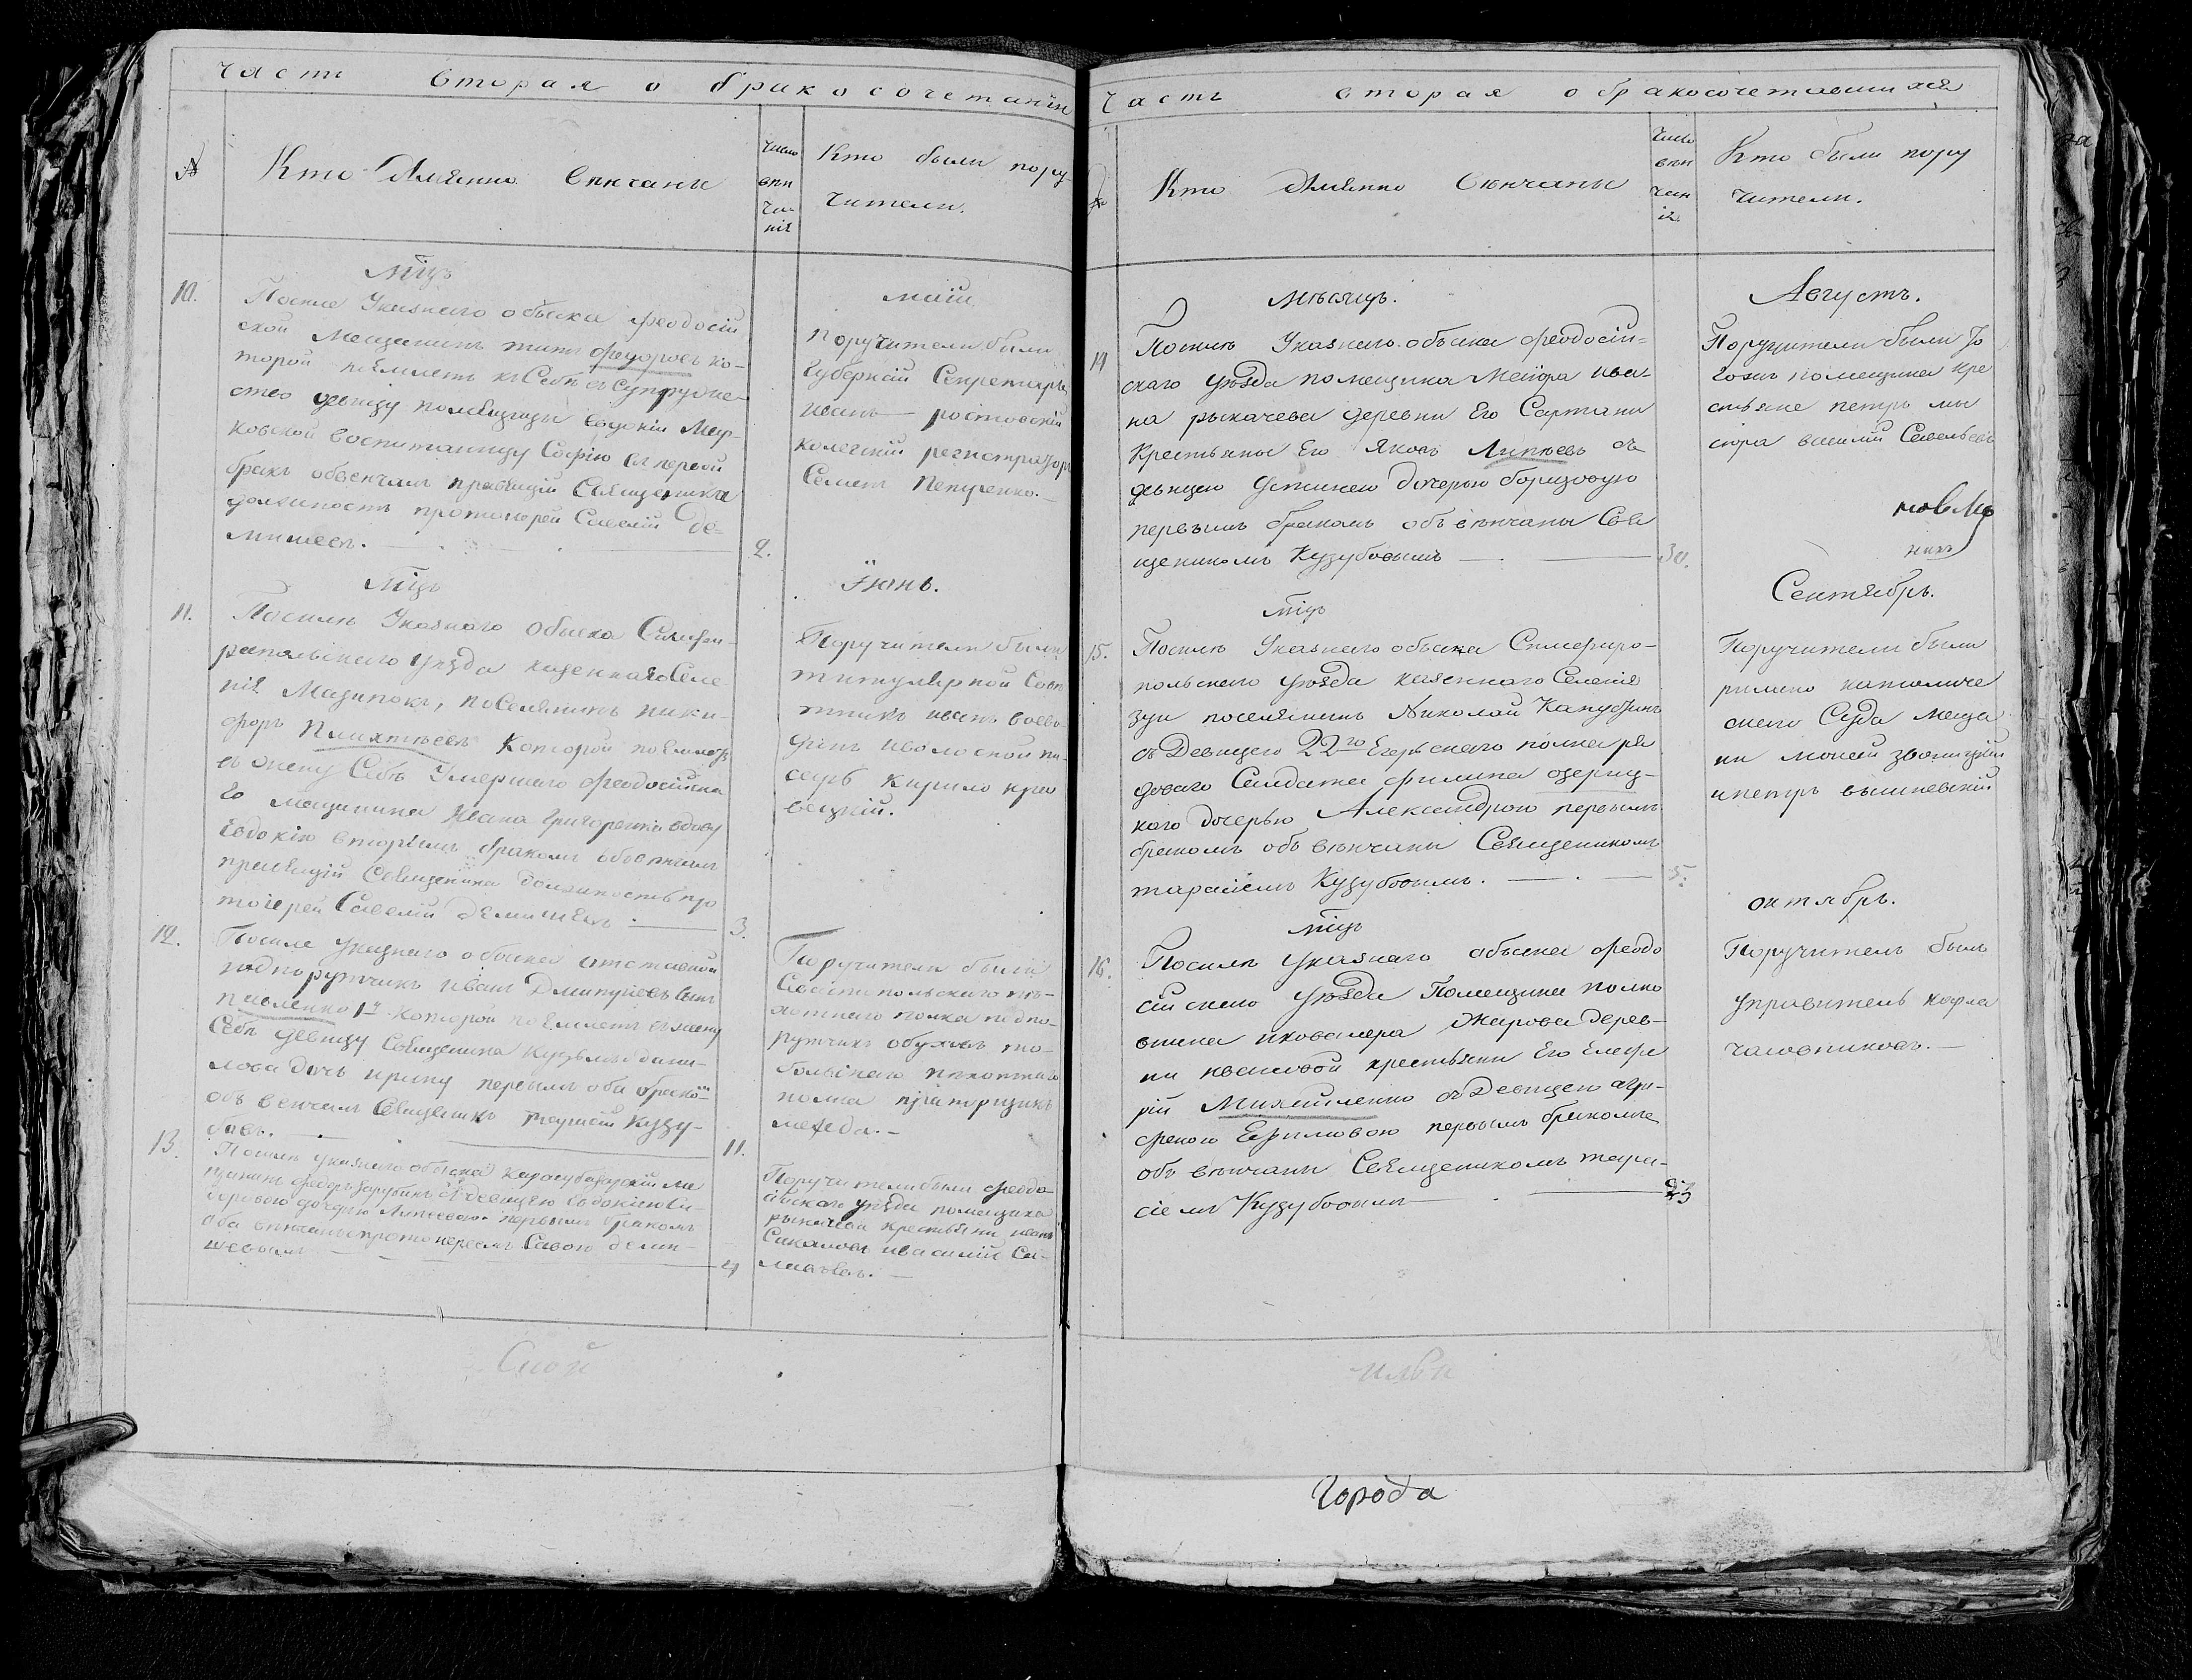 Часть вторая о бракосочетании
№
Кто Имянно венчаны
число
вен
ча-
нія
Кто были пору-
чители.
Мцъ
маій
10.
После Указнаго обыска феодосій
ской Мещанинъ титъ федоровъ ко-
торой поемлетъ къ Себе въ Супруже-
ство девицу помещицы Евдокіи Мар-
ковской воспитаницу Софію первой
бракъ обвенчалъ правящій Священика
должность протоиерей Савелій Де-
мишевъ.
2.
поручители были
Губернскій Секретарь
иванъ ростовскій
колегскій регистраторъ
Семенъ Петренко.
Мцъ
Іюнь.
11.
Послѣ Указнаго обыска Симфи-
рапольскаго уезда казеннаго Селе
нія Мазипокъ, поселянинъ ники-
форъ Плихтѣевъ которой поемлетъ
въ жену Себе Умершаго феодосійска
го мещанина Ивана григоренка вдову
Евдокію вторымъ бракомъ обвенчалъ
правящій Священика должность про
тоіерей Савелій демишевъ
3.
Поручители были
титулярной Сове
тникъ иванъ
волоской пи-
сарь Кирило кра
вецкій.
12.
После указнаго обыска отставной
подпорутчикъ иванъ Дмитріевъ Сынъ
павленко 1й которой поемлетъ въ жену
Себе девицу Священика Кузьмы дани-
лова дочь ирину первымъ оба бракомъ
объ венчалъ Священикъ тарасій Кузу-
бовъ.
11.
Поручители были
Севастопольскаго пе-
хотнаго полка подпо-
рутчикъ обуховъ то-
больскаго пехотнаго
полка прапорщикъ
13.
Послѣ указнаго обыска Карасубазарскій ме
щанинъ федоръ Зарубинъ съ девицею Евдокіею
доровою дочерью Липеевою первымъ бракомъ
оба венчаны протоиереемъ Савою деми-
шевымъ
Поручители были феодо-
сійскаго уезда помещика
рыкачева крестьяни иванъ
Сакаловъ и василій Са-
Спой
Часть вторая о бракосочетавшихся
№
Кто Имянно Венчаны
число
вен
чан
ія
Кто были пору
чители.
мѣсяцъ.
Августъ.
14
Послѣ Указнаго обыска феодосій-
скаго уѣзда помещика Маіора ива-
на рыкачева деревни Его Сартани
Крестьяны Его Яковъ Липѣевъ съ
девицею Устинею дочерью борщовую
первымъ бракомъ объ венчаны Свя
щеникомъ Кузубовымъ
30.
Поручители были То
гожъ помещика кре
стьяне петръ
василій Савельевъ
Сентябрь.
Мцъ
15.
Послѣ Указнаго обыска Симферо-
польскаго уѣзда казеннаго Селенія
зуи поселянинъ Николай Капустинъ
съ Девицею 22го Егерскаго полка ря
доваго Салдата филипа озериц-
каго дочерью Александрою первымъ
бракомъ объ венчаны Священикомъ
тарасіемъ Кузубовымъ.
5.
Поручители были
римско католиче
скаго Суда меща
ни
и петръ вышневскій
октябрь.
Мцъ
16.
Послѣ указнаго обыска феодо
сійскаго уѣзда Помещика полко
вника и ковалера Жарова Дерев-
ни ивановой крестьяни Его Елефе
рій Михайленко съ Девицею агри-
феною Ефимовою первымъ бракомъ
объ венчаны Священикомъ тара-
сіемъ Кузубовымъ
Поручитель былъ
управитель карла
часовниковъ.
Города